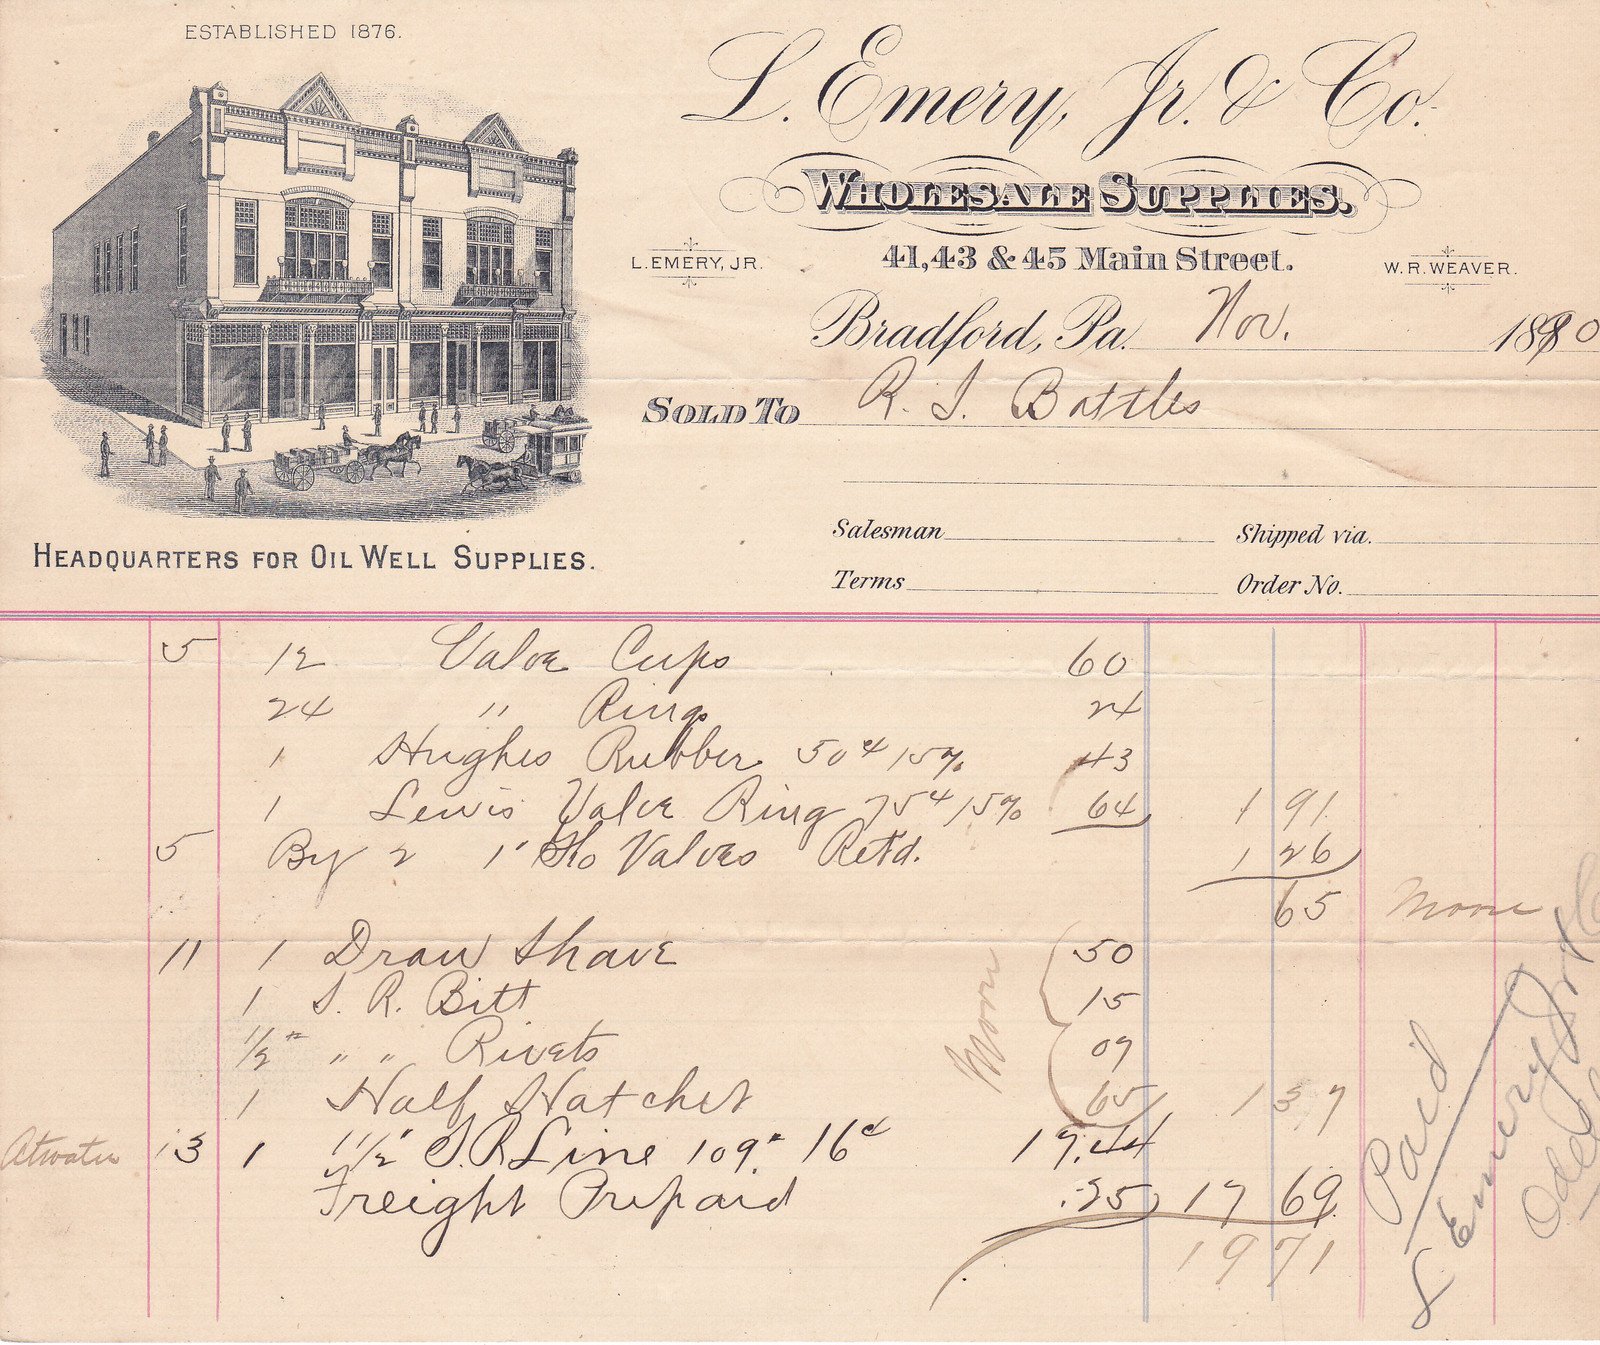 ESTABLISHED 1876.
L. Emery, Jr. & Co.
WHOLESALE SUPPLIES.
41, 43 & 45 Main Street.
L. EMERY, JR.
W. R. WEAVER.
Bradford, Pa. Nov. 1890
SOLD TO R. S. Battles
Salesman Shipped via.
Terms Order No.
HEADQUARTERS FOR OIL WELL SUPPLIES.
5 12 Valve Cups 60
24 " Rings 24
1 Hughes Rubber 50¢ 15% 43
1 Lewis Valve Ring 75¢ 15% 64 1 91
5 By 2 1" Valves Retd. 1 26
65 Moore
11 1 Draw Shave 50
1 S. R. Bitt 15
1/2" " " Rivets 09
1 Half Hatchet 65 1 39
Moore
Atwater 13 1 1 1/2" S. R. Line 109" 16¢ 17.44
Freight Prepaid .25 17 69
19 71
Paid
L Emery Jr & Co